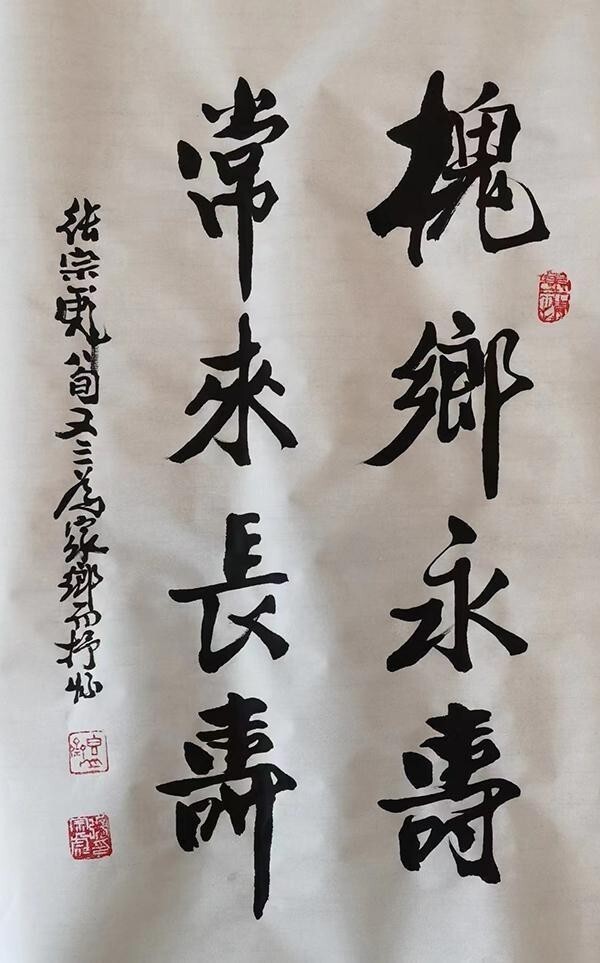 槐鄉永壽
常來長壽
張宗彪八旬又二為家鄉而抒懷